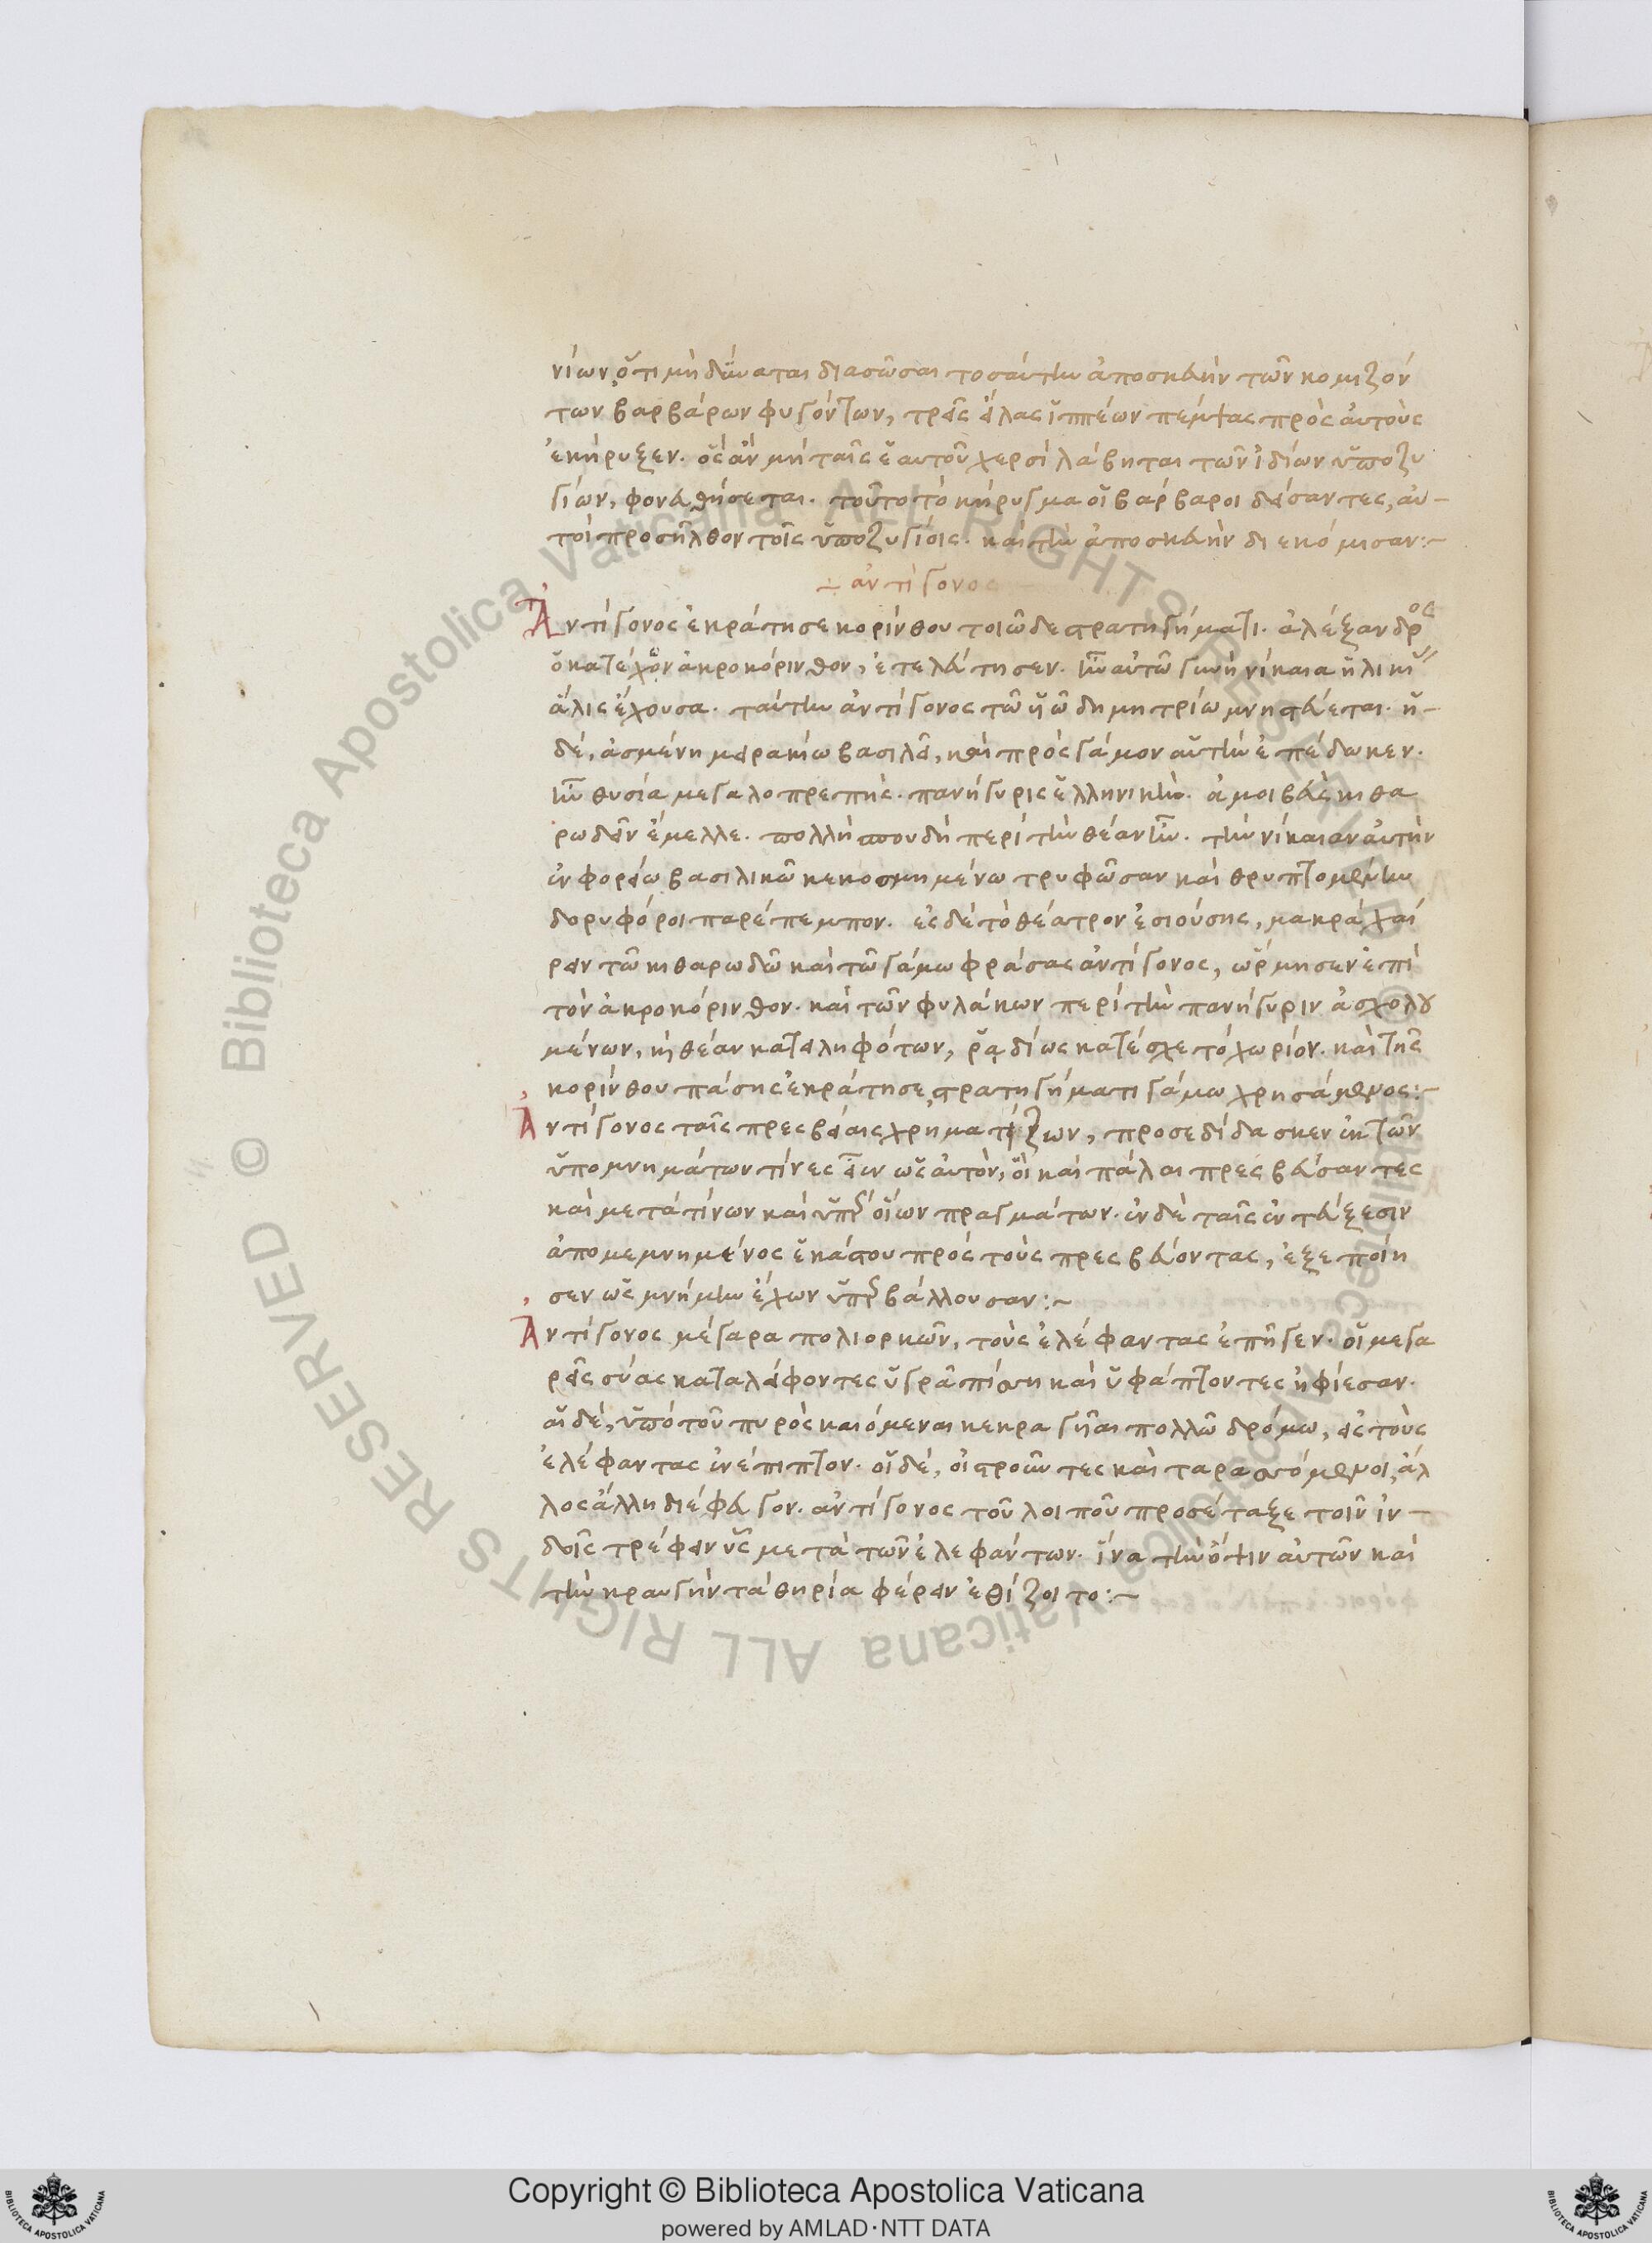 νίων, ὅτι μὴ δύναται διασῶσαι τοσαύτην ἀποσκευὴν τῶν κομιζόν
των βαρβάρων φυγόντων, τρεῖς εἴλας ἱππέων πέμψας πρὸς αὐτοὺς
ἐκήρυξεν. ὃς ἂν μὴ ταῖς ἑαυτοῦ χερσὶ λάβηται τῶν ἰδίων ὑποζυ
γίων, φονευθήσεται. τοῦτο τὸ κήρυγμα οἱ βάρβαροι δείσαντες, αὐ-
τοὶ προσῆλθον τοῖς ὑποζυγίοις. καὶ τὴν ἀποσκευὴν διεκόμισαν:-
ἀντίγονος
Ἀντίγονος ἐκράτησε κορίνθου τοιῶδε στρατηγήματι. ἀλέξανδρος
ὁ κατέχων ἀκροκόρινθον, ἐτελεύτησεν. ἦν αὐτῶ γυνὴ νίκαια ἡλικίας
ἅλις ἔχουσα. ταύτην ἀντίγονος τῶ υἱῶ δημητρίω μνηστεύεται. ἡ-
δὲ, ἀσμένη μειρακίω βασιλεῖ, καὶ πρὸς γάμον αὑτὴν ἐπέδωκεν.
ἦν θυσία μεγαλοπρεπὴς. πανήγυρις ἑλληνικὴ. ἀμοιβεὺς κιθα
ρωδεῖν ἔμελλε. πολλὴ σπουδὴ περὶ τὴν θέαν ἦν. τὴν νίκαιαν αὐτὴν
ἐν φορείω βασιλικῶ κεκοσμημένω τρυφῶσαν καὶ θρυπτομένην
δορυφόροι παρέπεμπον. ἐς δὲ τὸ θέατρον ἐσιούσης, μακρὰ χαί
ρειν τῶ κιθαρωδῶ καὶ τῶ γάμω φράσας ἀντίγονος, ὥρμησεν ἐπὶ
τὸν ἀκροκόρινθον. καὶ τῶν φυλάκων περὶ τὴν πανήγυριν ἀσχολου
μένων, κὴ θέαν κατειληφότων, ῥαδίως κατέσχε τὸ χωρίον. καὶ τῆς
κορίνθου πάσης ἐκράτησε, στρατηγήματι γάμω χρησάμενος:-
Ἀντίγονος ταῖς πρεσβείαις χρηματίζων, προσεδίδασκεν ἐκ τῶν
ὑπομνημάτων τίνες εἶεν ὡς αὐτὸν, οἱ καὶ πάλαι πρεσβεύσαντες
καὶ μετὰ τίνων καὶ ὑπὲρ οἵων πραγμάτων. ἐν δὲ ταῖς ἐντεύξεσιν
ἀπομεμνημένος ἑκάστου πρὸς τοὺς πρεσβεύοντας, ἐξεποίη
σεν ὡς μνήμην ἔχων ὑπερβάλλουσαν:-
Ἀντίγονος μέγαρα πολιορκῶν, τοὺς ἐλέφαντας ἐπῆγεν. οἱ μεγα
ρεῖς σύας καταλείφοντες ὑγρᾶ πίσση καὶ ὑφάπτοντες ἠφίεσαν.
αἱ δὲ, ὑπὸ τοῦ πυρὸς καιόμεναι κεκραγῆαι πολλῶ δρόμω, εἰς τοὺς
ἐλέφαντας ἐνέπιπτον. οἱ δὲ, οἰστροῦντες καὶ ταρασσόμενοι, ἄλ
λος ἄλλη διέφευγον. ἀντίγονος τοῦ λοιποῦ προσέταξε τοῖν ἰν-
δοῖς τρέφειν ὗς μετὰ τῶν ἐλεφάντων. ἵνα τὴν ὄψιν αὐτῶν καὶ
τὴν κραυγὴν τὰ θηρία φέρειν ἐθίζοιτο:-
Copyright © Biblioteca Apostolica Vaticana
powered by AMLAD·NTT DATA
© Biblioteca Apostolica Vaticana ALL RIGHTS RESERVED
© Biblioteca Apostolica Vaticana ALL RIGHTS RESERVED